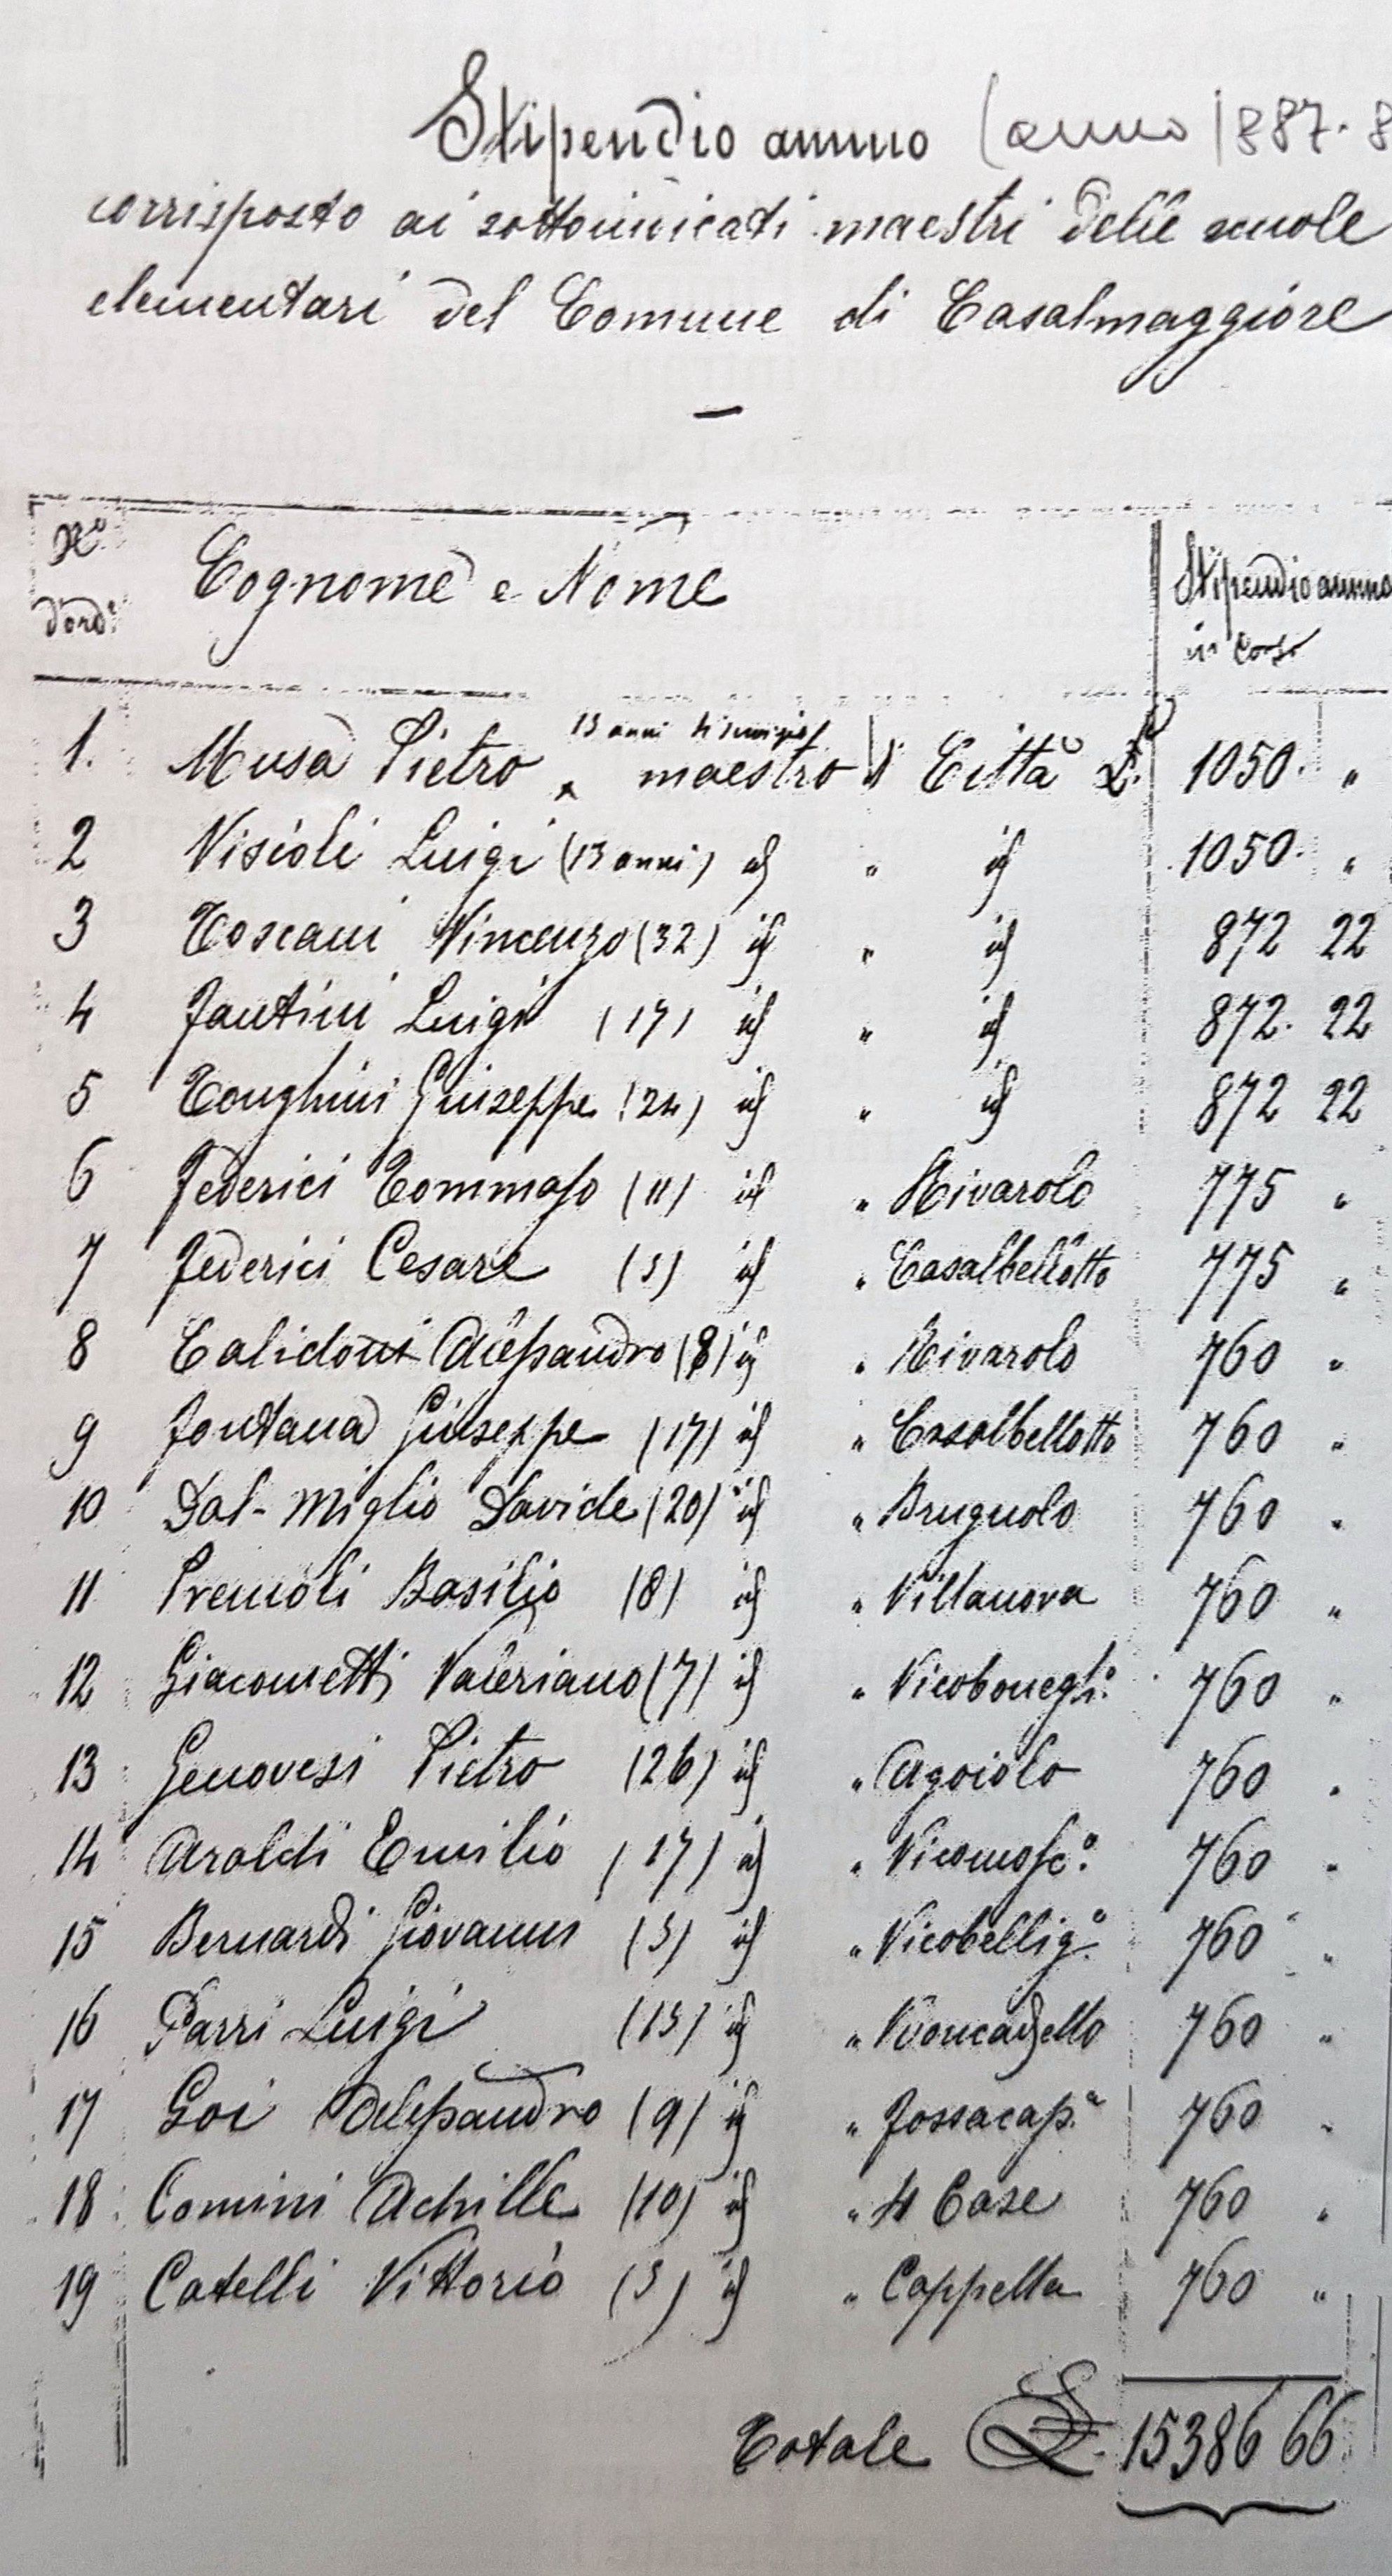 Stipendio annuo (anno 1887-8
corrisposto ai sottoindicati maestri delle scuole
elementari del Comune di Casalmaggiore
—
N.º d'ord.e Cognome e Nome Stipendio annuo in corso
1. Musa Pietro 13 anni di servizio maestro di Città L. 1050. "
2 Visioli Luigi (13 anni) id " id 1050. "
3 Toscani Vincenzo (32) id " id 872 22
4 Fantini Luigi (17) id " id 872. 22
5 Tonghini Giuseppe (24) id " id 872 22
6 Federici Tommaso (11) id " Rivarolo 775 "
7 Federici Cesare (3) id " Casalbellotto 775 "
8 Calidoni Alessandro (8) id " Rivarolo 760 "
9 Fontana Giuseppe (17) id " Casalbellotto 760 "
10 Dal-Miglio Davide (20) id " Brugnolo 760 "
11 Premoli Basilio (8) id " Villanova 760 "
12 Giacometti Valeriano (7) id " Vicobonegh.º 760 "
13 Genovesi Pietro (26) id " Agoiolo 760 "
14 Araldi Emilio (17) id " Vicomosc.º 760 "
15 Bernardi Giovanni (3) id " Vicobellig.º 760 "
16 Parri Luigi (13) id " Roncadello 760 "
17 Goi Alessandro (9) id " Fossacap.ª 760 "
18 Comini Achille (10) id " 4 Case 760 "
19 Catelli Vittorio (3) id " Cappella 760 "
Totale L. 15386 66